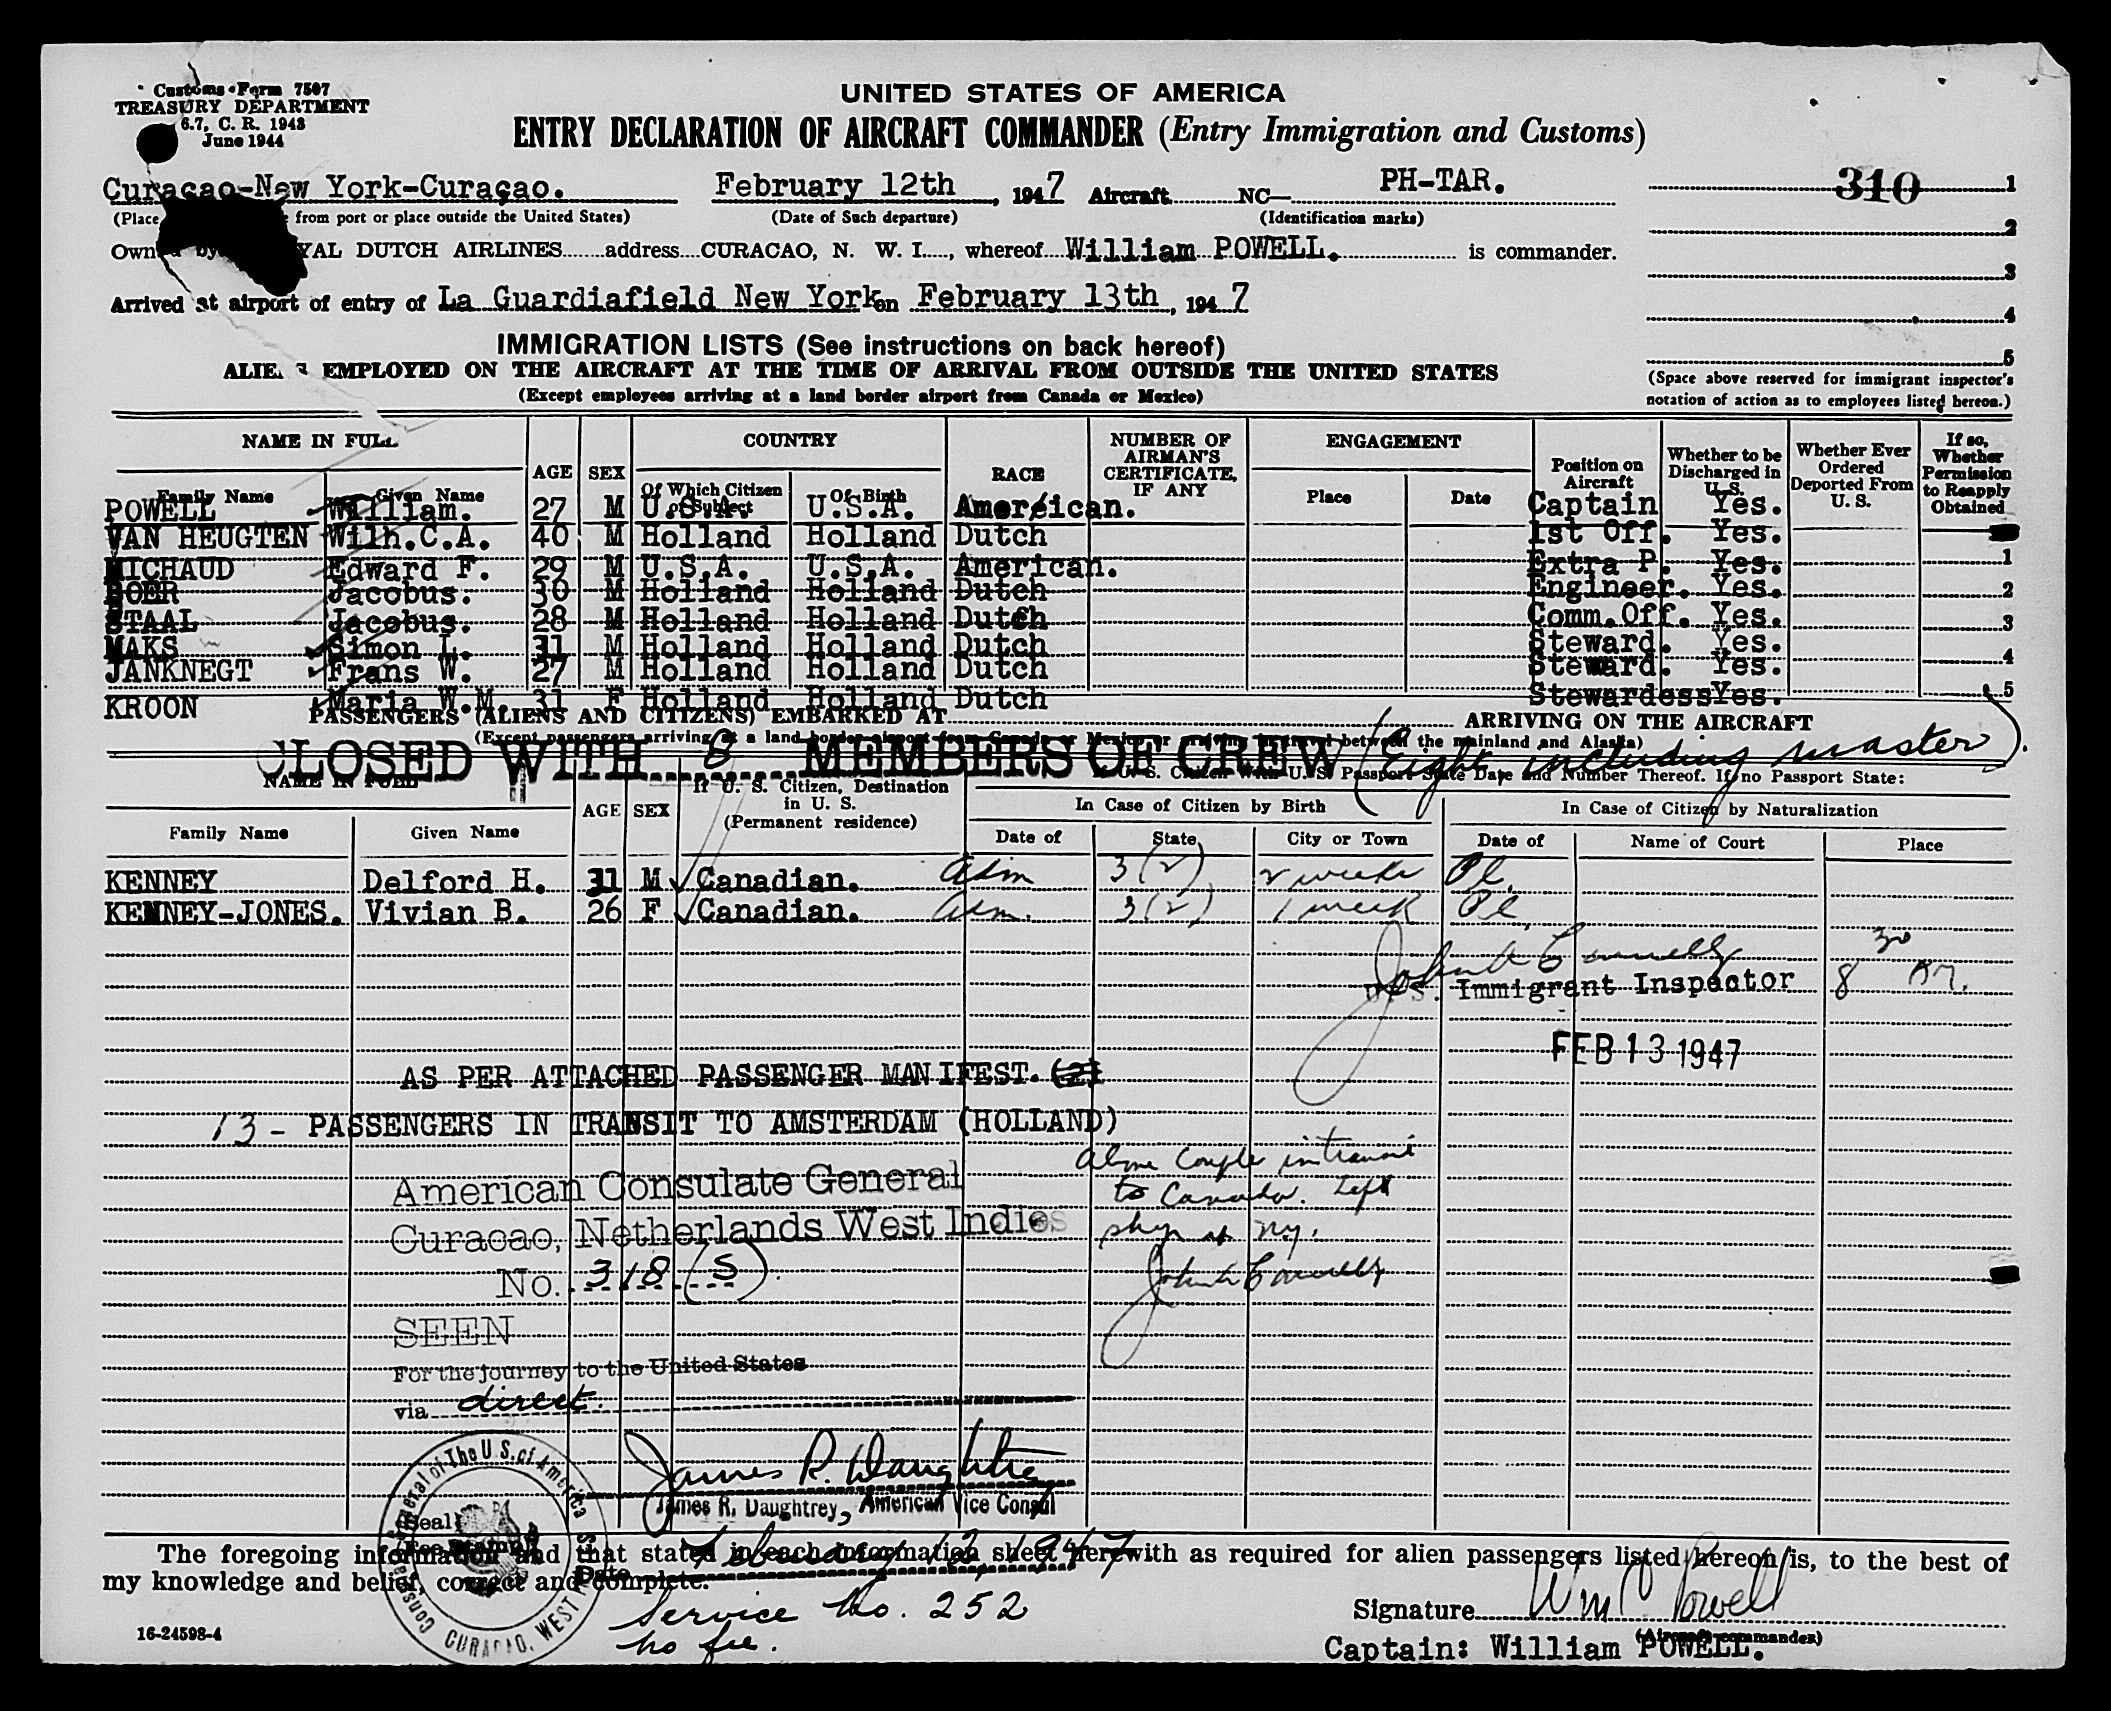 Customs Form 7507
TREASURY DEPARTMENT
6.7, C. R. 1943
June 1944
UNITED STATES OF AMERICA
ENTRY DECLARATION OF AIRCRAFT COMMANDER (Entry Immigration and Customs)
Curaçao-New York-Curaçao. February 12th, 1947 Aircraft NC— PH-TAR. 310 1
(Place from port or place outside the United States) (Date of Such departure) (Identification marks)
2
Owned by YAL DUTCH AIRLINES address CURACAO, N. W. I., whereof William POWELL. is commander.
3
Arrived at airport of entry of La Guardiafield New York on February 13th, 1947
4
IMMIGRATION LISTS (See instructions on back hereof)
5
ALIE S EMPLOYED ON THE AIRCRAFT AT THE TIME OF ARRIVAL FROM OUTSIDE THE UNITED STATES
(Except employees arriving at a land border airport from Canada or Mexico)
(Space above reserved for immigrant inspector's
notation of action as to employees listed hereon.)
NAME IN FULL AGE SEX COUNTRY RACE NUMBER OF AIRMAN'S CERTIFICATE, IF ANY ENGAGEMENT Position on Aircraft Whether to be Discharged in U. S. Whether Ever Ordered Deported From U. S. If so, Whether Permission to Reapply Obtained
Family Name Given Name Of Which Citizen or Subject Of Birth Place Date
POWELL William. 27 M U.S.A. U.S.A. American. Captain Yes.
VAN HEUGTEN Wilh.C.A. 40 M Holland Holland Dutch 1st Off. Yes.
MICHAUD Edward F. 29 M U.S.A. U.S.A. American. Extra P. Yes. 1
BOER Jacobus. 30 M Holland Holland Dutch Engineer. Yes. 2
STAAL Jacobus. 28 M Holland Holland Dutch Comm.Off. Yes. 3
MAKS Simon L. 31 M Holland Holland Dutch Steward. Yes.
JANKNEGT Frans W. 27 M Holland Holland Dutch Steward. Yes. 4
KROON Maria W.M. 31 F Holland Holland Dutch Stewardess Yes. 5
PASSENGERS (ALIENS AND CITIZENS) EMBARKED AT ARRIVING ON THE AIRCRAFT
(Except passengers arriving at a land border airport from Canada or Mexico or between the mainland and Alaska)
CLOSED WITH 8 MEMBERS OF CREW (Eight including master).
NAME IN FULL AGE SEX If U. S. Citizen, Destination in U. S. (Permanent residence) If U. S. Citizen With U. S. Passport State Date and Number Thereof. If no Passport State:
In Case of Citizen by Birth In Case of Citizen by Naturalization
Family Name Given Name Date of State City or Town Date of Name of Court Place
KENNEY Delford H. 31 M Canadian. Adm 3(2) 2 weeks Pl.
KENNEY-JONES. Vivian B. 26 F Canadian. Adm. 3(2) 1 week Pl
John Connelly
U. S. Immigrant Inspector 8 30
FEB 13 1947
AS PER ATTACHED PASSENGER MANIFEST. (2)
13 - PASSENGERS IN TRANSIT TO AMSTERDAM (HOLLAND)
Above couple in transit
to Canada. Left
American Consulate General
Curacao, Netherlands West Indies
at NY.
No. 318 (S).
John Connelly
SEEN
For the journey to the United States
via direct.
James R. Daughtrey
James R. Daughtrey, American Vice Consul
Consulate General of The U.S. of America
CURACAO, WEST
(Seal)
(Fee Stamp)
Date February 12, 1947
The foregoing information and that stated in each information sheet herewith as required for alien passengers listed hereon is, to the best of
my knowledge and belief, correct and complete.
Service No. 252
no fee.
Signature Wm C Powell
(Aircraft commander)
Captain: William POWELL.
16-24598-4